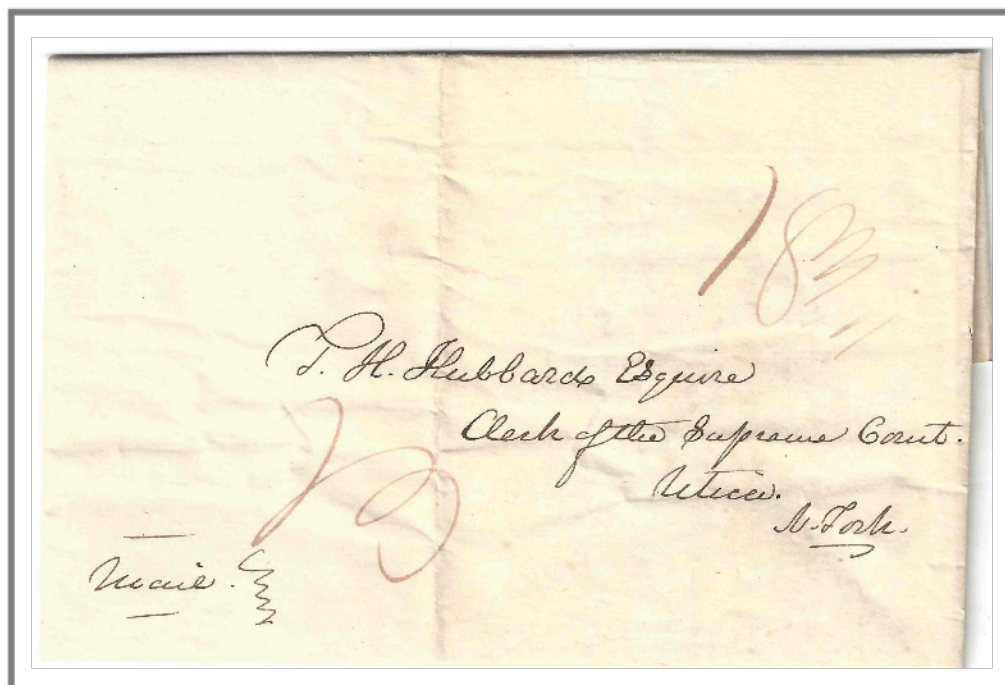 18¾
T. H. Hubbard Esquire
Clerk of the Supreme Court.
Utica.
N. York.
Mail.